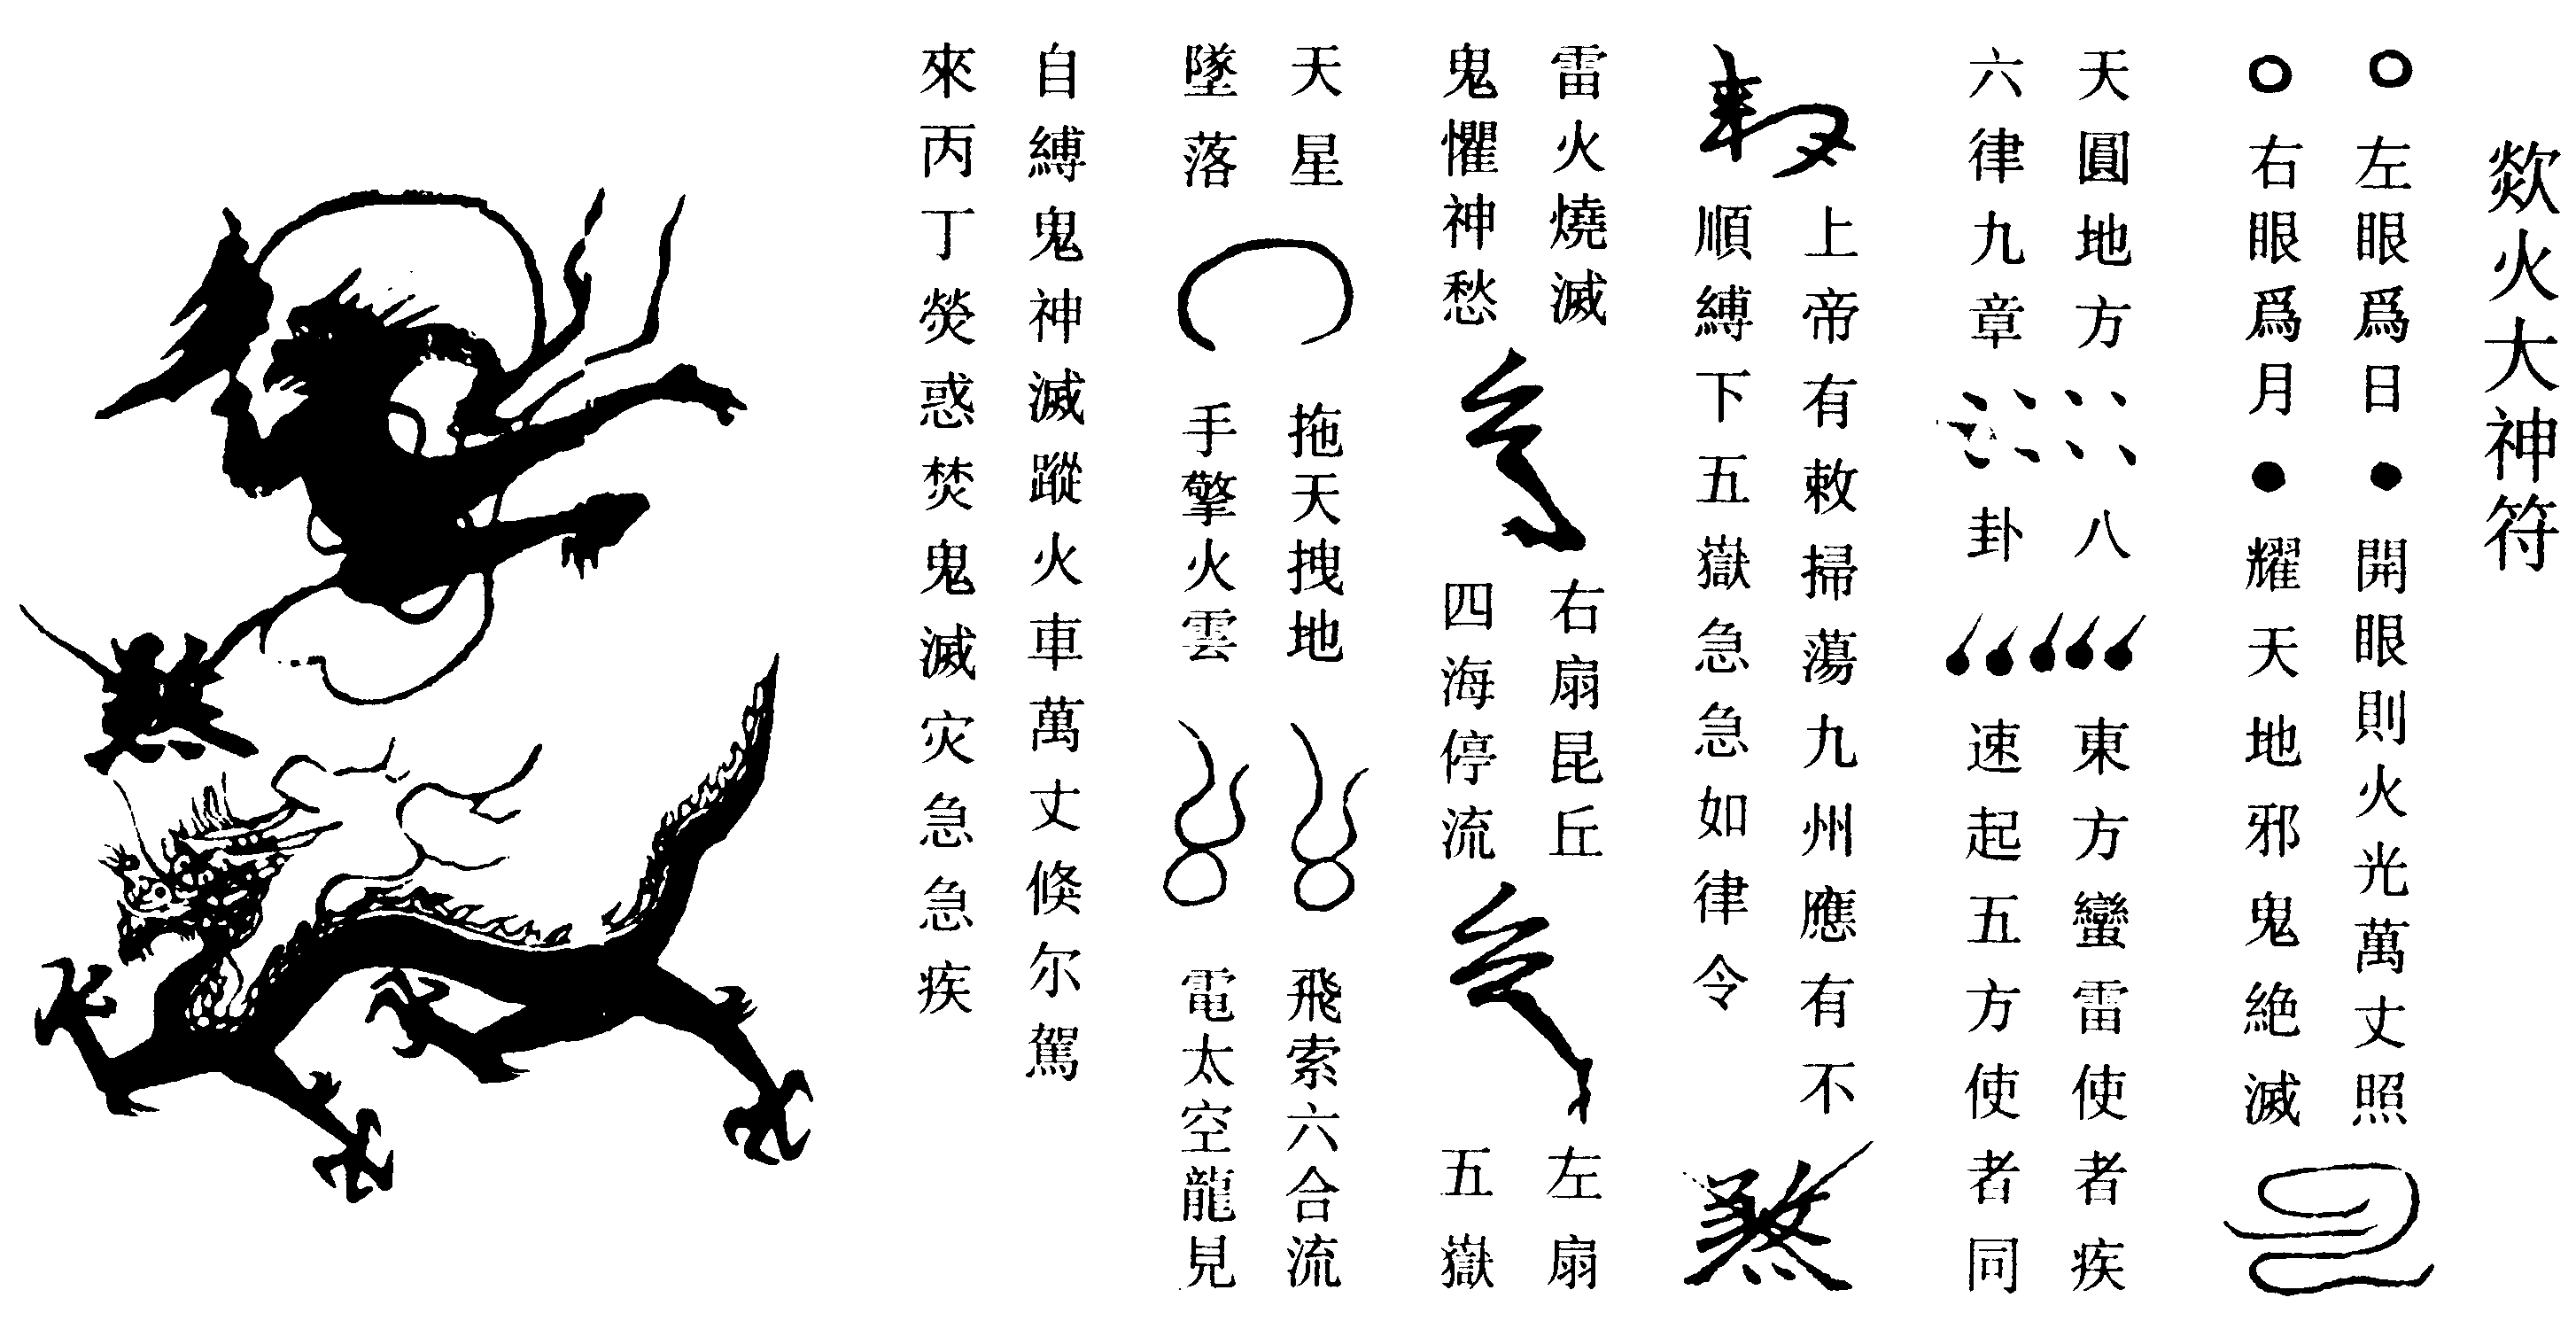 欻火大神符
左眼爲日
右眼爲月
開眼則火光萬丈照
耀天地邪鬼絶滅
天圓地方
六律九章
八
卦
東方蠻雷使者疾
速起五方使者同
敕
上帝有敕掃蕩九州應有不
順縛下五嶽急急如律令
煞
雷火燒滅
鬼懼神愁
右扇昆丘
四海停流
左扇
五嶽
天星
墜落
拖天拽地
手擎火雲
飛索六合流
電太空龍見
自縛鬼神滅蹤火車萬丈倏尔駕
來丙丁熒惑焚鬼滅灾急急疾
煞